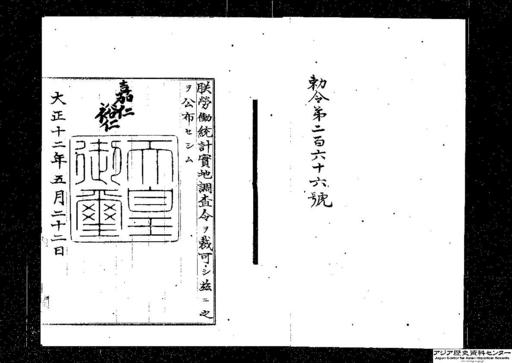 勅令第二百六十六號
朕勞働統計實地調査令ヲ裁可シ茲ニ之
ヲ公布セシム
嘉仁
裕仁
天皇御璽
大正十二年五月二十二日
アジア歴史資料センター
Japan Center for Asian Historical Records